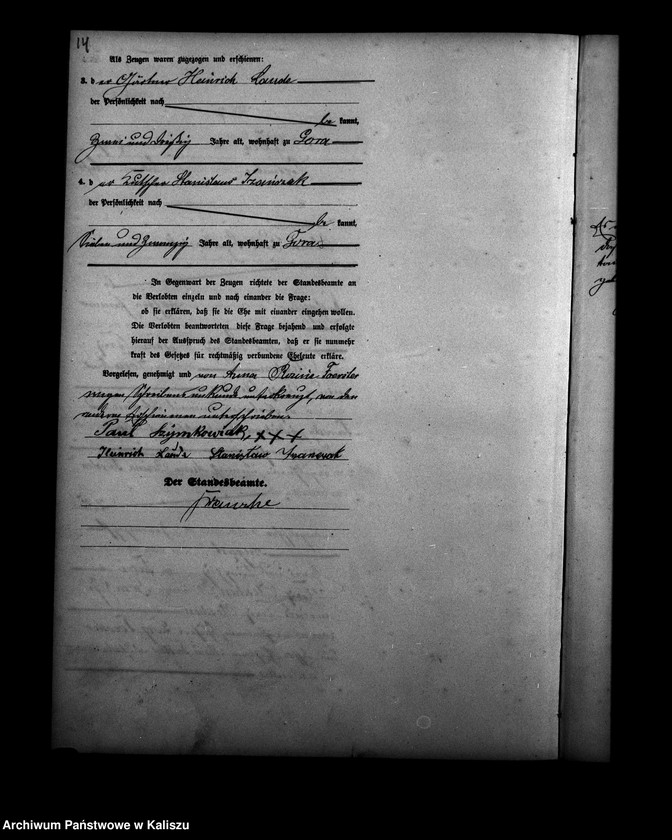 14
Als Zeugen waren zugezogen und erschienen:
3. der Gärtner Heinrich Laude
der Persönlichkeit nach
be kannt,
zwei und dreißig Jahre alt, wohnhaft zu Gora
4. der Kutscher Stanislaus
der Persönlichkeit nach
be kannt,
Sieben und zwanzig Jahre alt, wohnhaft zu Gora
In Gegenwart der Zeugen richtete der Standesbeamte an
die Verlobten einzeln und nach einander die Frage:
ob sie erklären, daß sie die Ehe mit einander eingehen wollen.
Die Verlobten beantworteten diese Frage bejahend und erfolgte
hierauf der Ausspruch des Standesbeamten, daß er sie nunmehr
kraft des Gesetzes für rechtmäßig verbundene Eheleute erkläre.
Vorgelesen, genehmigt und von Anna Rosine Foerster
wegen Schreibensunkunde unterkreuzt, von den
anderen Erschienenen unterschrieben.
Paul Szymkowiak, + + +
Heinrich Laude Stanisław
Der Standesbeamte.
Archiwum Państwowe w Kaliszu